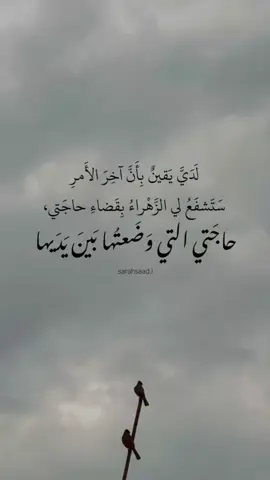 لَدَيَّ يَقينٌ بِأَنَّ آخِرَ الأَمرِ
سَتَشفَعُ لي الزَّهْراءُ بِقَضاءِ حاجَتي،
حاجَتي التي وَضَعتُها بَينَ يَدَيها
sarahsaad.i